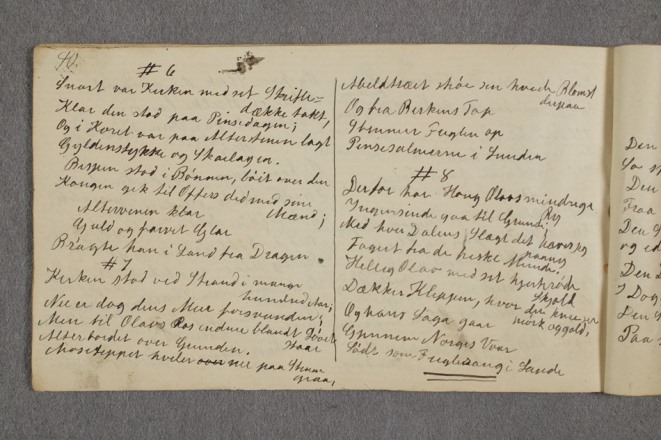 40.
# 6
Snart var Kirken med sit Skifer=
dække takt,
Klar den stod paa Pinsedagen;
Og i Koret var paa Altersteinen lagt
Gyldenstykke og Skarlagen.
Bispen stod i Bønnen, bøit over den
Kongen gik til Offers did med sine
Mænd;
Altervinen klar
Guld og farvet Glar
Bragte han i Land fra Dragen.
# 7
Kirken stod ved Strand i mange
hundred Aar;
Nu er dog dens Mur forsvunden;
Men til Olavs Ros endnu blandt Løvet
staar
Alterbordet over Grunden.
Mosetæppet hviler nu paa Stuen
graa,
Abeldtræet strøe sin hvide Blomst
derpaa
Og fra Birkens Top
Stemmer Fuglen op
Pinsesalmerne i Lunden
# 8
Derfor har Kong Olavs mindrige
Ry
Ingensinde gaa til Grunde;
Med hver Dalens Slægt det
paany
Faget fra de friske Munde.
Hellig Olav med sit hjerterøde
Skjold
Dækker Kleppen, hvor den kneiser
mørk og gold,
Og hans Saga gaar
Gjennem Norges Vaar
Sødt som Fuglesang i Lunde
Den
Saa
Den
Fraa
Den
og
Den
I Dog
Den
Paa